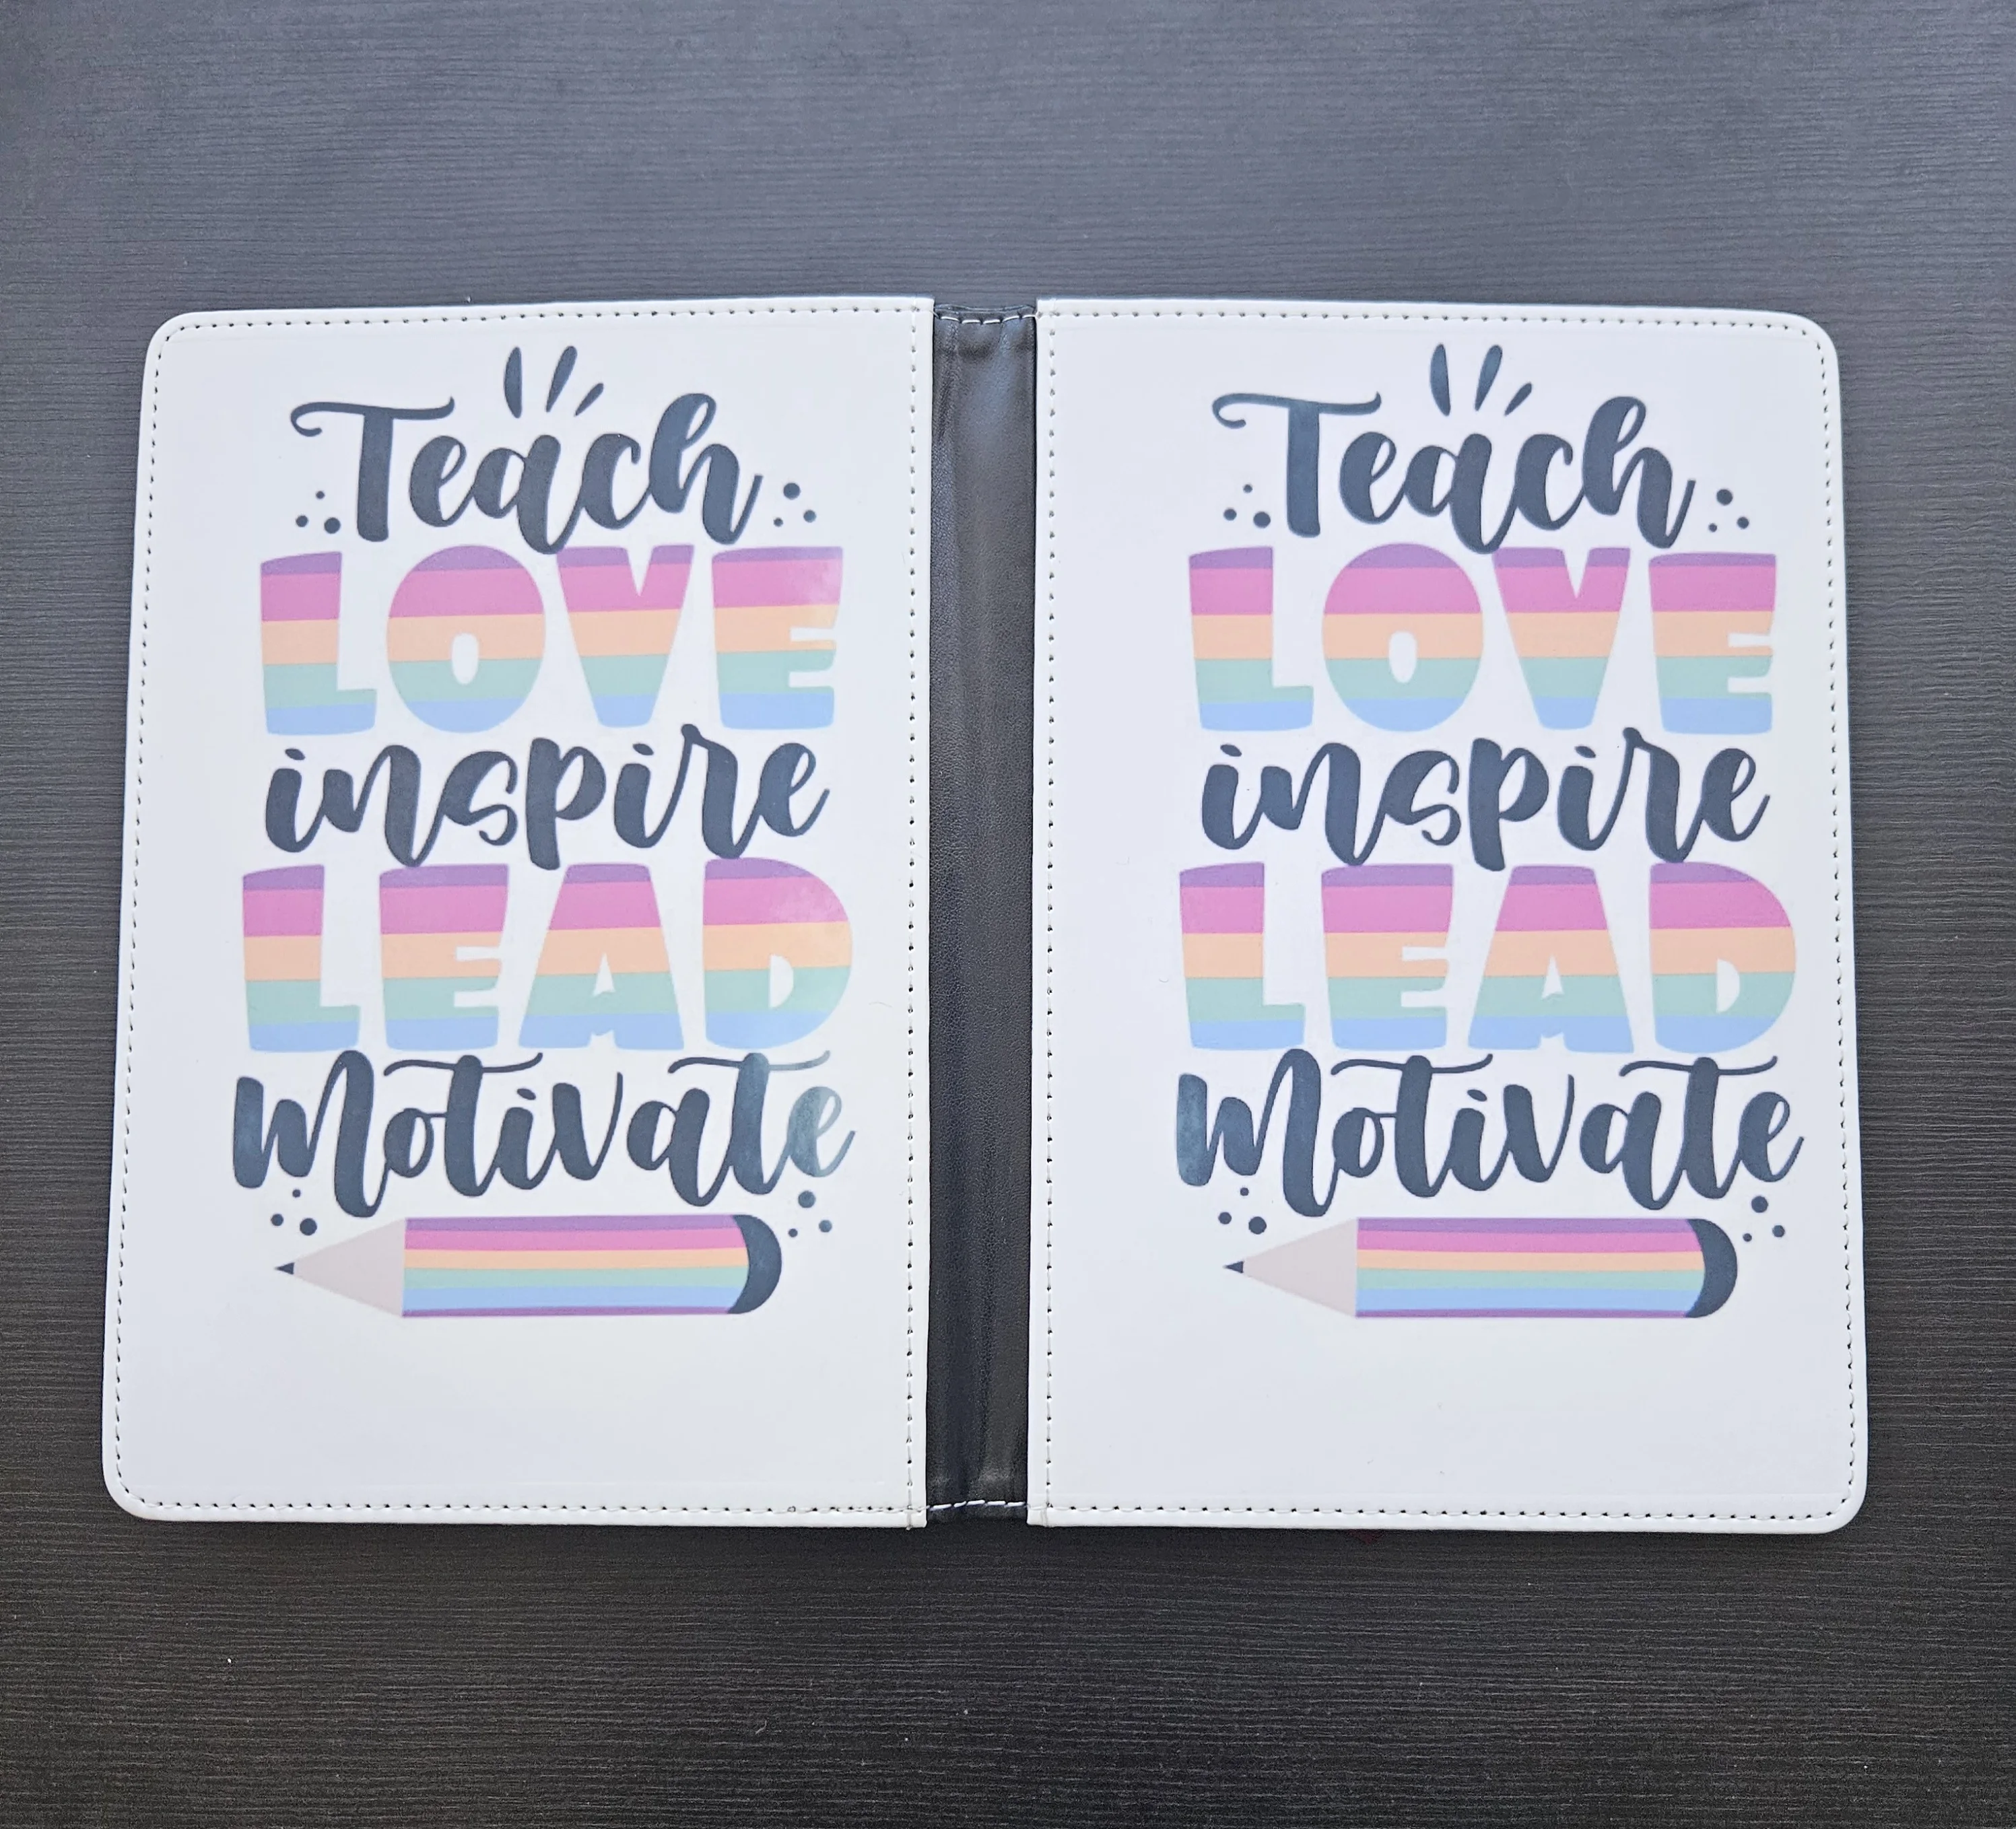 Teach
LOVE
inspire
LEAD
Motivate
Teach
LOVE
inspire
LEAD
Motivate